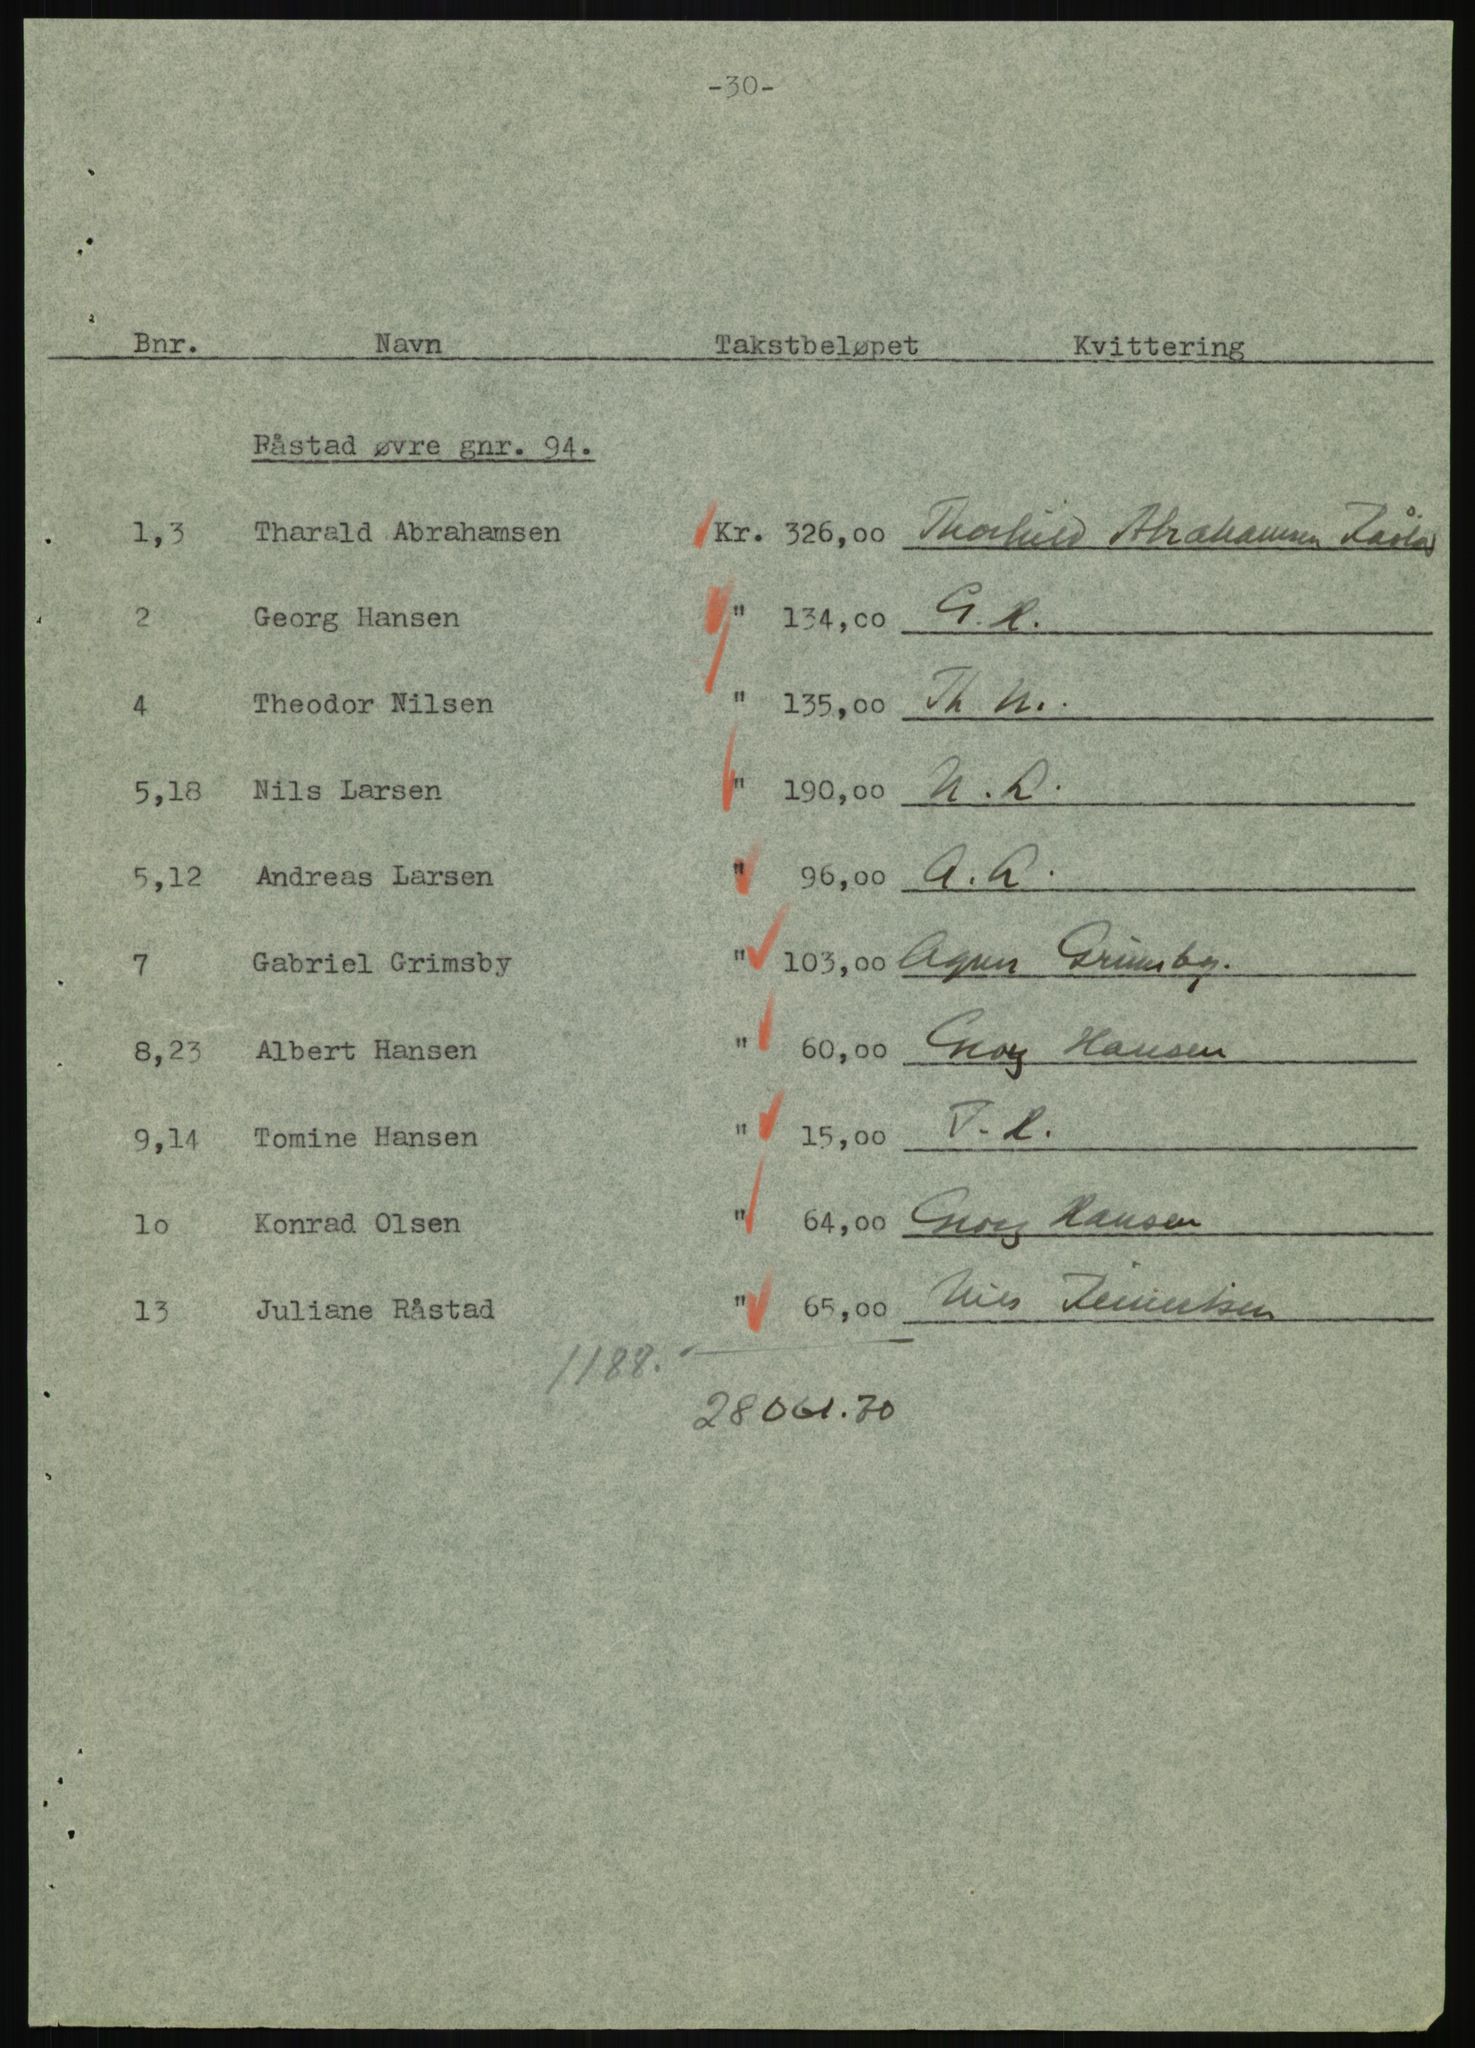 -30-
Bnr. Navn Takstbeløpet Kvittering
Råstad øvre gnr. 94.
1,3 Tharald Abrahamsen Kr. 326,00 Thorhild Abrahamsen Råstad
2 Georg Hansen " 134,00 G. H.
4 Theodor Nilsen " 135,00 Th N.
5,18 Nils Larsen " 190,00 N. L.
5,12 Andreas Larsen " 96,00 A. L.
7 Gabriel Grimsby " 103,00 Agnes Grimsby.
8,23 Albert Hansen " 60,00 Georg Hansen
9,14 Tomine Hansen " 15,00 T. H.
10 Konrad Olsen " 64,00 Georg Hansen
13 Juliane Råstad " 65,00 Nils
1188.
28061.70